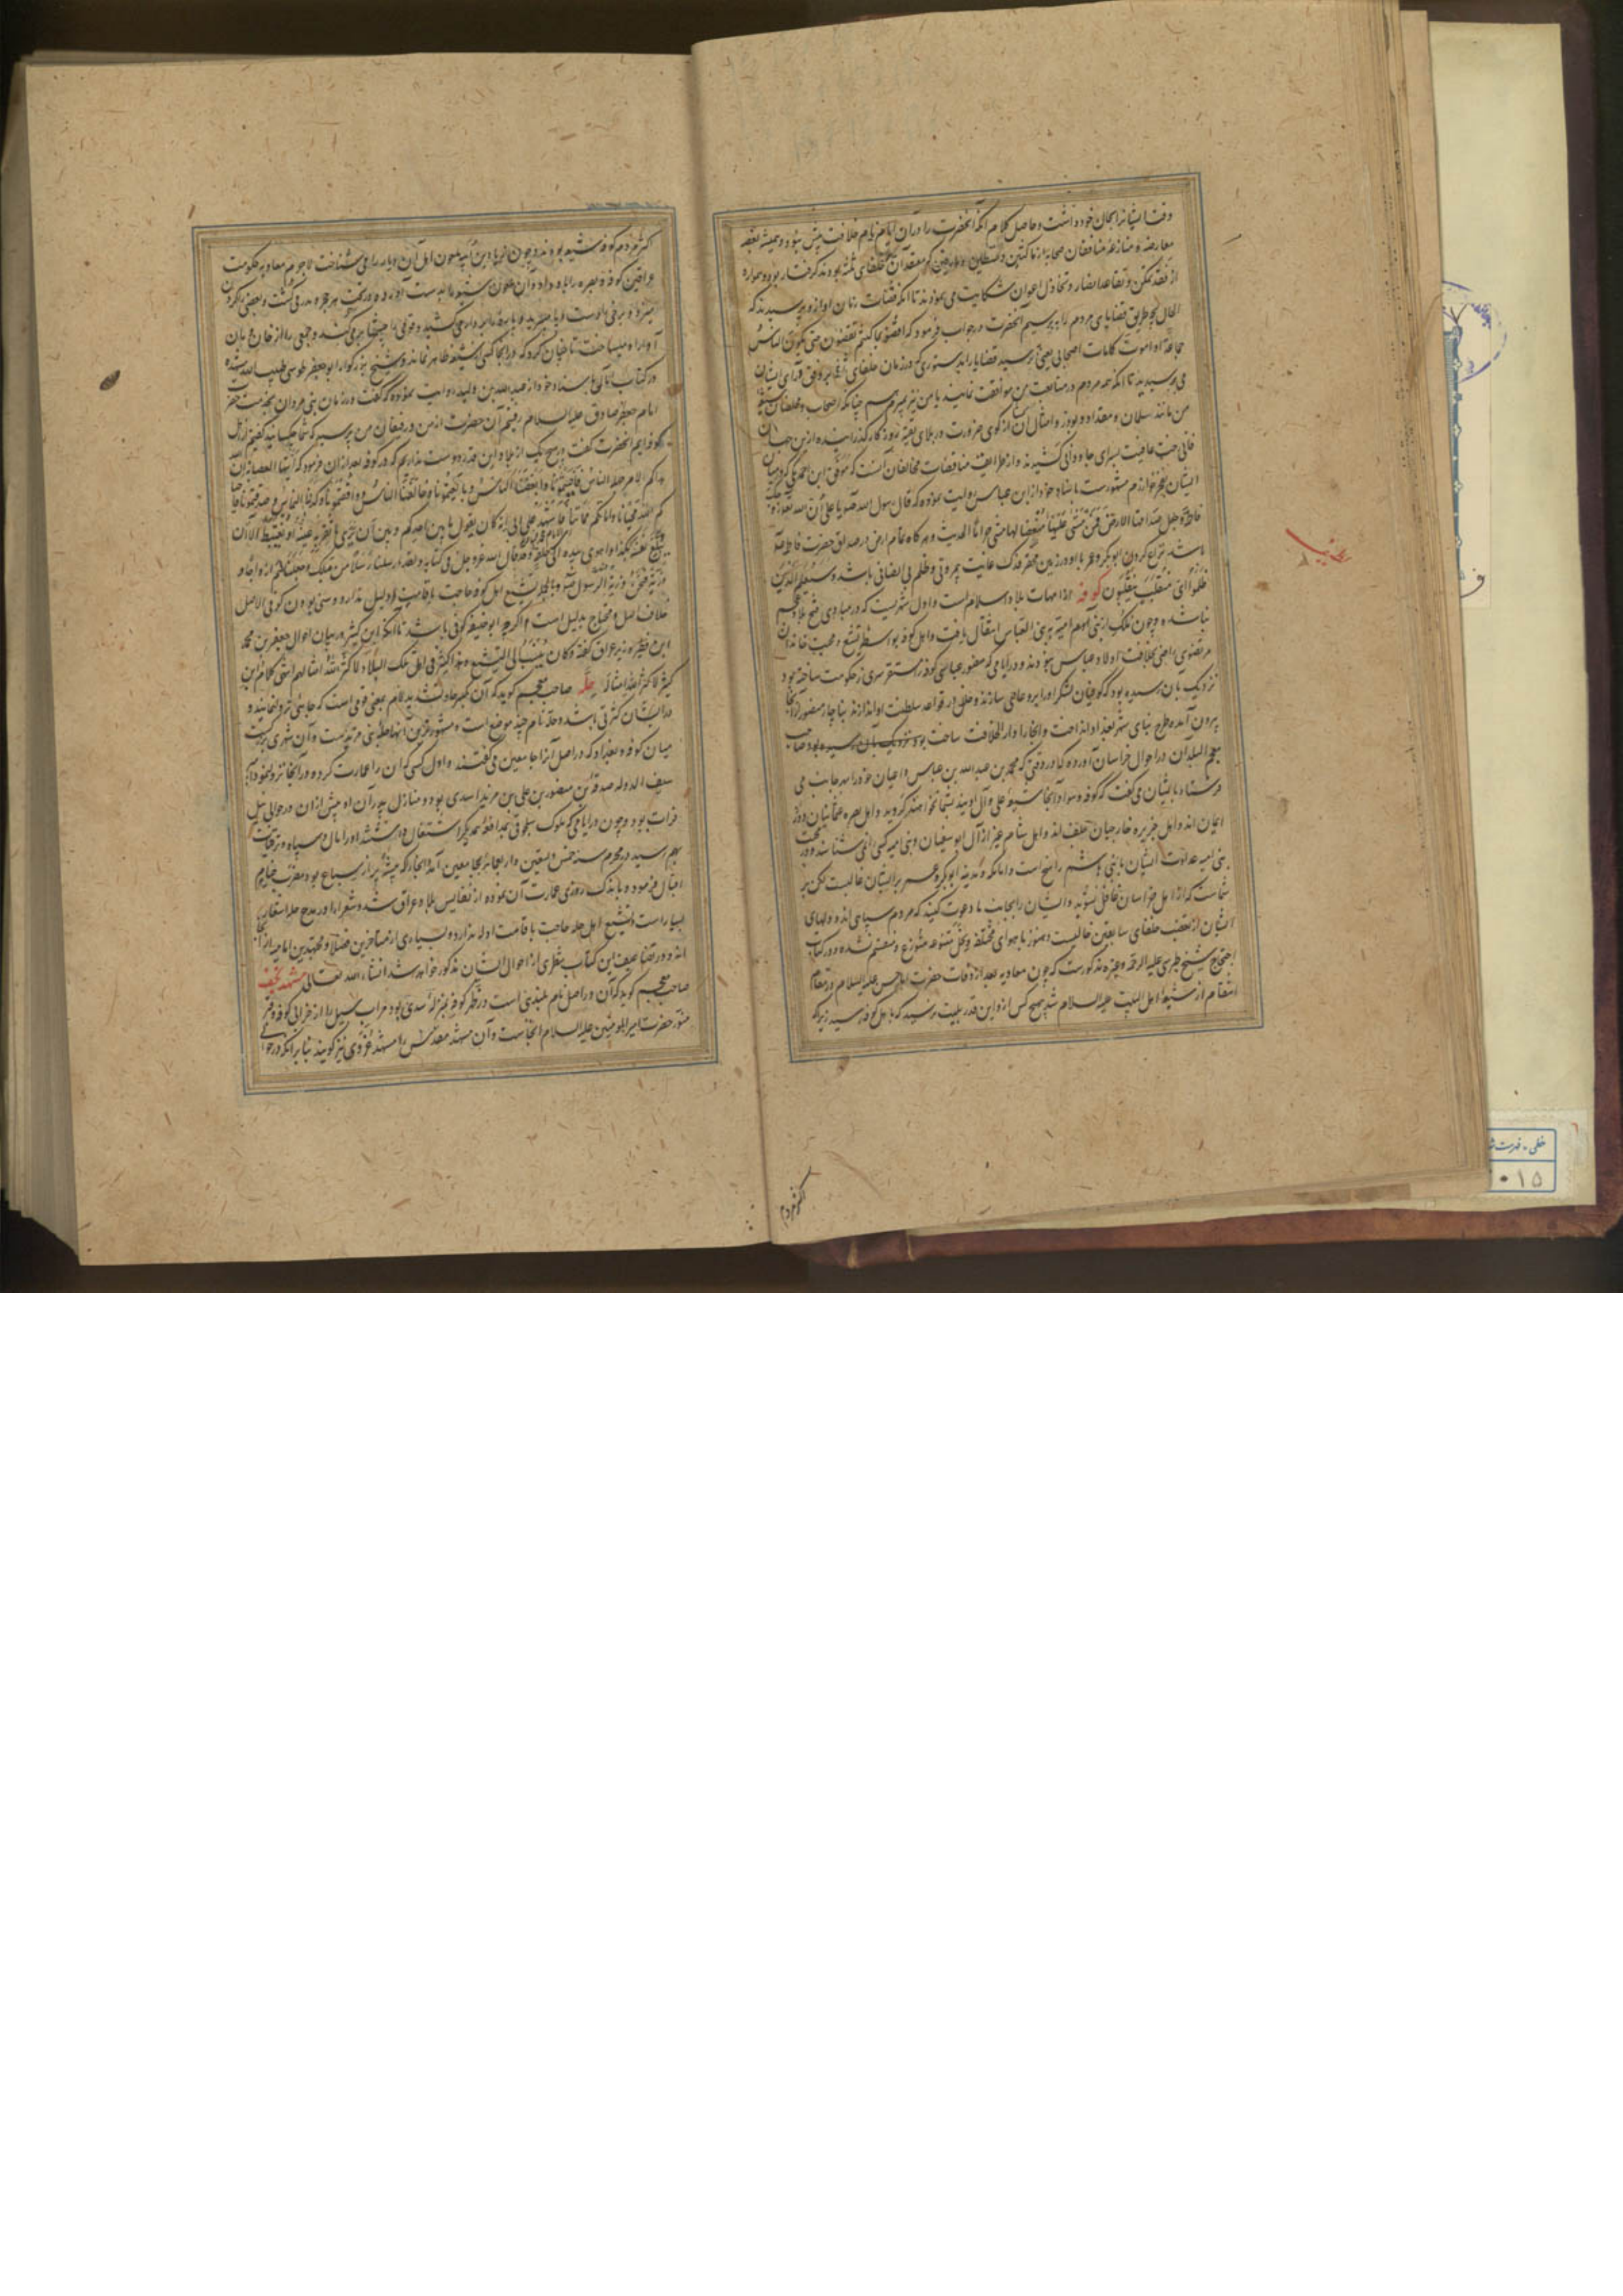 وقت ایشانرا بحال خود داشت و حاصل کلام آنکه آنحضرت را در آن ایام نام خلافت بیش نبود و همیشه
معارضه و منازعه منافقان صحابه از ناکثین و قاسطین و مارقین که معتقدان خلفای ثلثه بودند گرفتار بود و همواره
از فقد تمکن و تقاعد انصار و تخاذل اعوان شکایت می نمودند تا آنکه قضات زمان او ازو پرسیدند که
الحال بچه طریق قضایای مردم را بپرسیم آنحضرت در جواب فرمود که اقضوا بما کنتم تقضون حتی یکون الناس
جماعة او اموت کما مات اصحابی یعنی بپرسید قضایا را بدستوری که در زمان خلفای بر وفق رای ایشان
می پرسیدید تا آنکه همه مردم در متابعت من موافقت نمایند یا من نیز بمیرم چنانکه اصحاب و مخلصان
من مانند سلمان و مقداد و ابوذر و امثال ایشان در بلای تقیه روزگار گذرانیده ازین جهان
فانی رخت عافیت بسرای جاودانی کشیدند و از طرایف مناقضات مخالفان آنست که موفق ابن احمد مکی که در میان
ایشان بفخر خوارزم مشهورست باسناد خود از ابن عباس روایت نموده که قال رسول الله یا علی ان الله تعالی
فاطمة و جعل صداقها الارض فمن مشی علیها مبغضا لها مشی حراما الحدیث و هرگاه تمام ارض در صداق حضرت فاطمه
باشد نزاع کردن ابوبکر و عمر با او در زمین محقر فدک غایت بیمروتی و ظلم بی انصافی باشد و سیعلم الذین
ظلموا ای منقلب ینقلبون کوفه از امهات بلاد اسلام است و اول شهریست که در مبادی فتح بلاد عجم
بنا شده و چون ملک از بنی امیه به بنی العباس انتقال یافت و اهل کوفه بواسطه تشیع و محبت خاندان
مرتضوی راضی بخلافت اولاد عباس نبودند و در ایامی که منصور عباسی کوفه را مستقر سریر حکومت ساخته بود
نزدیک بان رسیده بود که کوفیان لشکر او را برو عاصی سازند و خلل در قواعد سلطنت او اندازند بناچار منصور از آنجا
بیرون آمده طرح بنای شهر بغداد انداخت و آنجا را دار الخلافت ساخت صاحب
معجم البلدان در احوال خراسان آورده که در وقتی که محمد بن عبدالله بن عباس داعیان خود را بهر جانب می
فرستاد بایشان می گفت که کوفه و سواد آنجا شیعه علی و آل اویند و اهل بصره عثمانیان
اند و اهل جزیره خارجیان و اهل شام غیر از آل ابوسفیان و بنی امیه کسی را نمی شناسند و در
بنی امیه عداوت ایشان با بنی هاشم راسخ است و اما مکه و مدینه ابوبکر و عمر بر ایشان غالبست لکن بر
شماست که از اهل خراسان غافل نشوید و ایشان را بجانب ما دعوت کنید که مردم سپاهی اند و دلهای
ایشان از تعصب خلفای سابقین خالیست و هنوز باهوای مختلفه و نحل متنوعه متوزع و منقسم نشده و در کتاب
احتجاج شیخ طبرسی علیه الرحمه و غیره مذکورست که چون معاویه بعد از وفات حضرت امام حسن علیه السلام در مقام
انتقام از شیعه اهل البیت علیهم السلام شد بهیچ کس از و این قدر بلیت نرسید که باهل کوفه رسید زیرا که
اکثر مردم
اکثر مردم کوفه شیعه بودند و چون زیاد ابن ابیه ملعون اهل آن دیار را می شناخت لاجرم معاویه حکومت
عراقین کوفه و بصره را باو داد و آن ملعون شیعه را بدست آورده در تحت هر حجر و مدر می کشت و بعضی را گردن
میزد و برخی را دست و پا می برید و پاره را بر دار می کشید و جمعی را از خان و مان
آواره میساخت تا چنان کرد که در آنجا کسی از شیعه ظاهر نماند و شیخ بزرگوار ابوجعفر طوسی طیب الله
در کتاب امالی باسناد خود از عبدالله بن ولید روایت نموده که گفت در زمان بنی مروان بخدمت حضرت
امام جعفر صادق علیه السلام رفتیم آن حضرت از من و رفیقان من پرسید که شما چه کسانید گفتیم از اهل
کوفه ایم آنحضرت گفت هیچ یک از بلاد این قدر دوست نداریم که در کوفه بعد از آن فرمود که ایتها العصابة ان الله
هداکم لامر جهله الناس فاحببتمونا و ابغضنا الناس و بایعتمونا و خالفنا الناس و صدقتمونا و کذبنا الناس
فاحیاکم الله محیانا و اماتکم مماتنا فاشهد علی ابی انه کان یقول ما بین احدکم و بین ان یری ما تقر به عینه او یغتبط الا ان
تبلغ نفسه هکذا و اهوی بیده الی حلقه و قد قال الله عز و جل فی کتابه و لقد ارسلنا رسلا من قبلک و جعلنا لهم ازواجا و
ذریة فنحن ذریة الرسول و بالجمله تشیع اهل کوفه حاجت باقامت دلیل ندارد و سنی بودن کوفی الاصل
خلاف اصل و محتاج بدلیل است اگرچه ابوحنیفه کوفی باشد تا آنکه ابن کثیر در بیان احوال جعفر بن محمد
ابن فطیره وزیر عراق گفته و کان ینسب الی التشیع و هذا کثیر فی اهل تلک البلاد لا کثر الله امثالهم انتهی کلام ابن
کثیر لا کثر الله امثاله حله صاحب معجم گوید که آن بکسر حا و تشدید لام بمعنی قومی است که جایی نزول نمایند و
در ایشان کثرتی باشد و حله نام چند موضع است و مشهورترین آنها حله بنی مزیدست و آن شهری بزرگست
میان کوفه و بغداد که در اصل آنرا جامعین می گفتند و اول کسی که آن را عمارت کرده و در آنجا نزول نمود
سیف الدوله صدقة بن منصور بن علی بن مزید اسدی بود و منازل پدران او پیش از آن در حوالی نیل
فرات بود و چون در ایامی که ملوک سلجوقی بمدافعه همدیگر اشتغال داشتند او را مال و سپاه و ترقیات
بهم رسید در محرم سنه خمس و تسعین و اربعمائه بجامعین آمد و آنجا در آن وقت بیشه پر از سباع بود و ضرب خیام
اقبال فرمود و باندک روزی عمارت آن نموده از نفایس بلاد عراق شد و شعرا را در مدح حله اشعار
بسیار است و تشیع اهل حله حاجت باقامت ادله ندارد و بسیاری از متأخرین فضلا و مجتهدین امامیه از آنجا
اند و در تضاعیف این کتاب سطری از احوال ایشان مذکور خواهد شد انشاء الله تعالی مشهد نجف
صاحب معجم گوید که آن در اصل نام بلندیی است در ظهر کوفه بمنزله سدی بود مر آب سیل را از خرابی کوفه و قبر
منور حضرت امیر المؤمنین علیه السلام آنجاست و آن مشهد مقدس را مشهد غروی نیز گویند بنا بر آنکه در حوالی
خطی - فهرست
۰۱۵